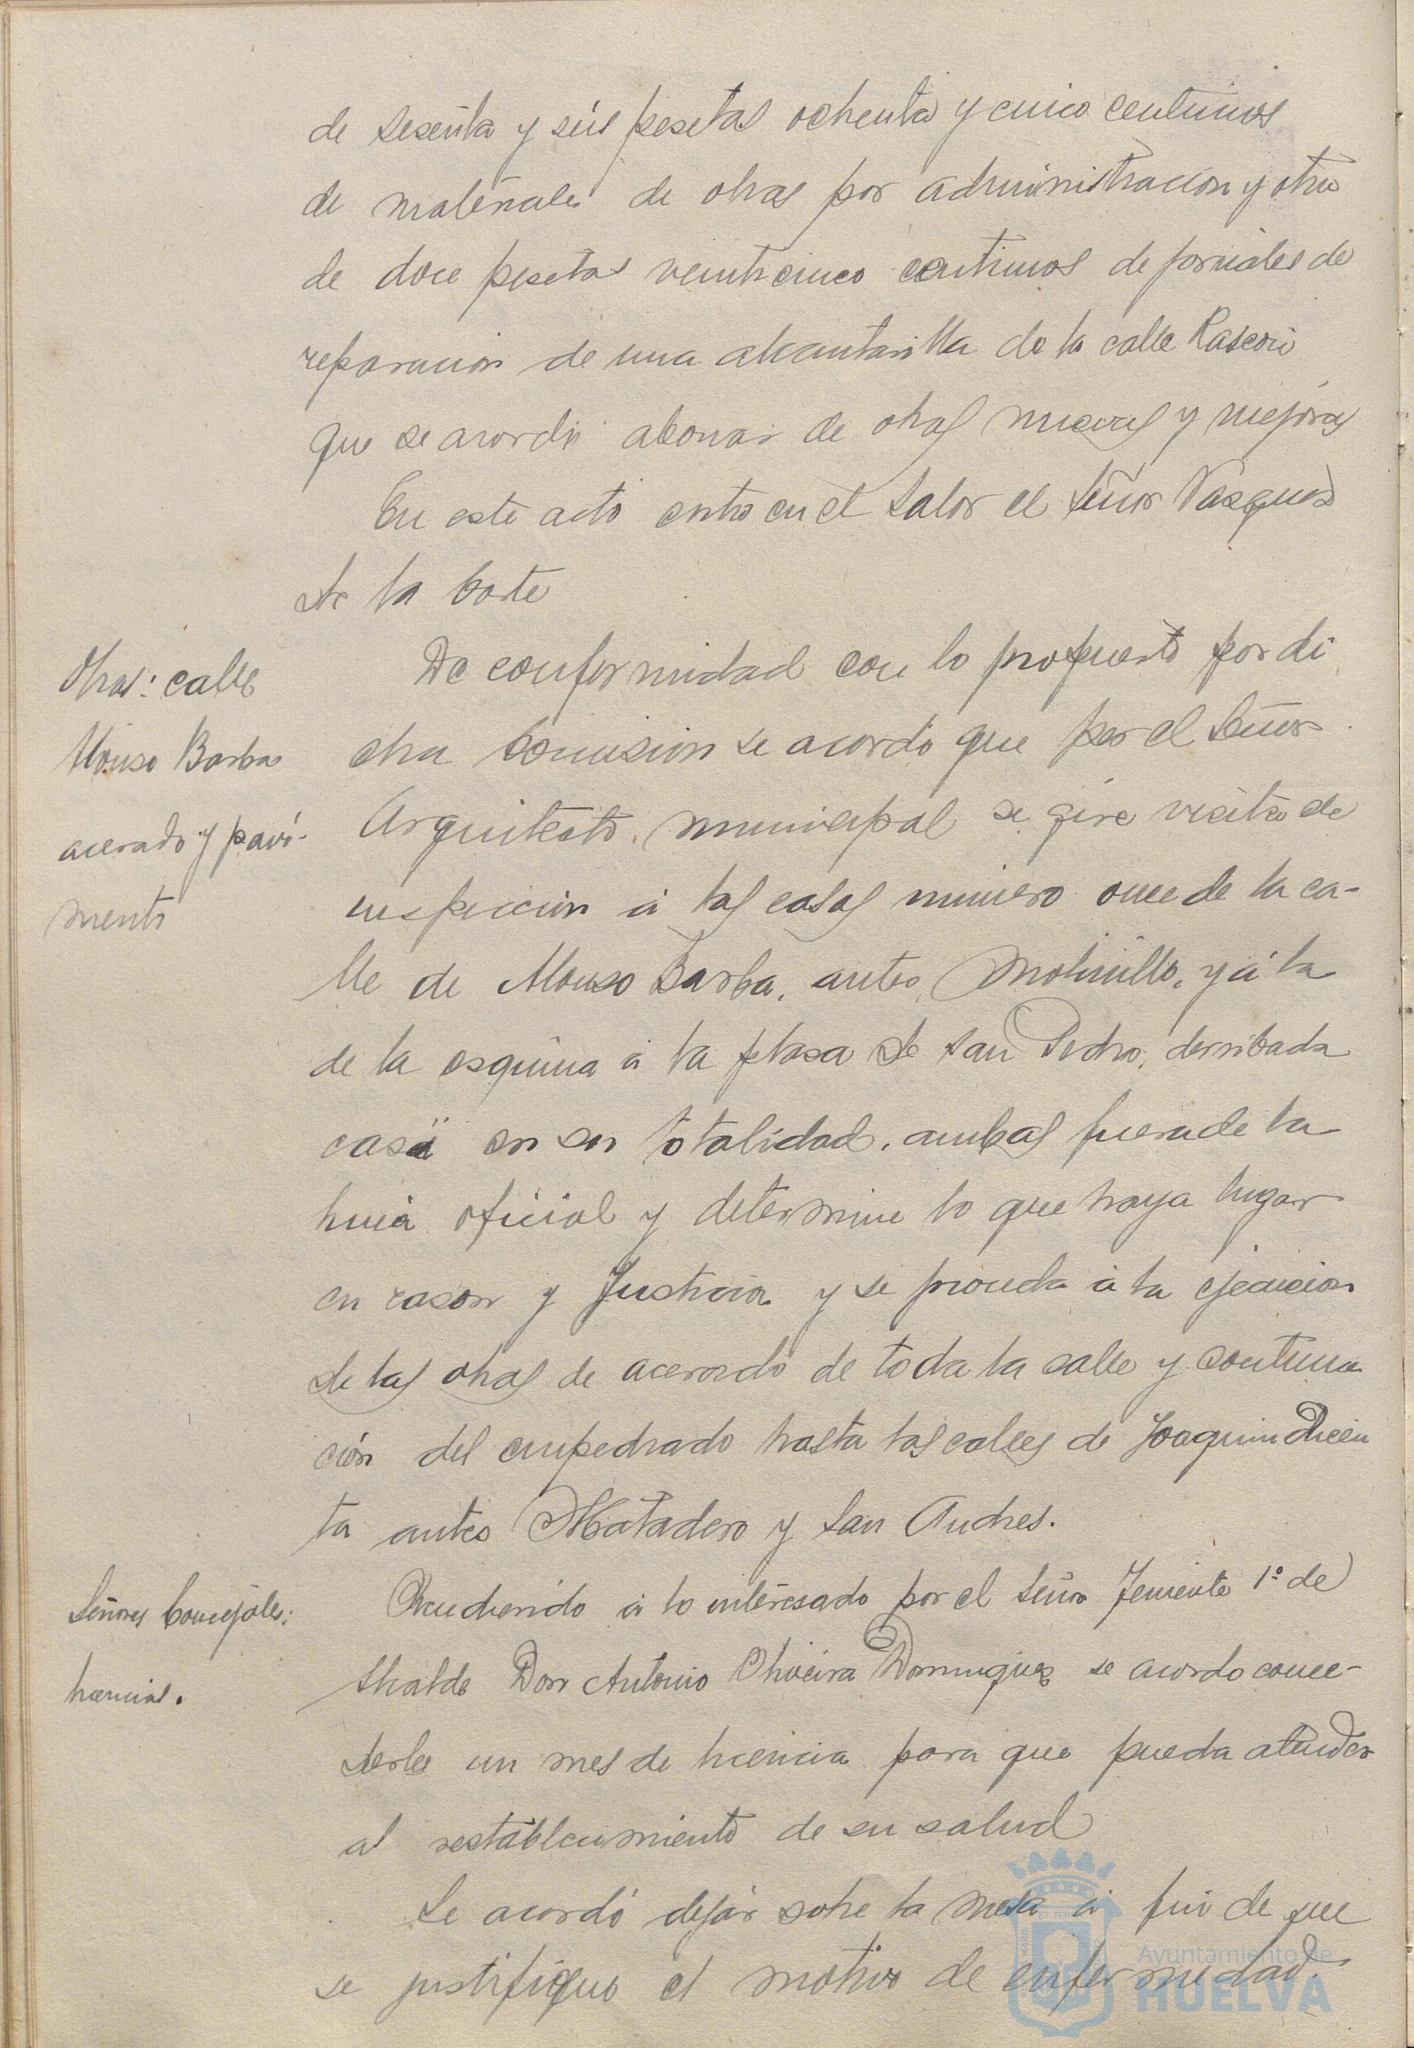 de sesenta y seis pesetas ochenta y cinco centimos
de materiales de obras por administracion y otra
de doce pesetas veinticinco centimos de jornales de
reparacion de una alcantarilla de la calle Rascon
que se acordó abonar de obras nuevas y mejoras
En este acto entro en el Salon el Señor Vasquez
de la Corte
Obras: calle
Alonso Barba
acerado y pavi-
mento
De conformidad con lo propuesto por di
cha Comision se acordó que por el Señor
Arquitecto municipal se gire visita de
inspeccion á las casas numero once de la ca-
lle de Alonso Barba, antes Molinillo, y á la
de la esquina á la plasa de San Pedro, derribada
casi en su totalidad, ambas fuera de la
linia oficial y determine lo que haya lugar
en rason y Justicia y se proceda á la ejecucion
de las obras de acerado de toda la calle y continua
ción del empedrado hasta las calles de Joaquin Dicen
ta antes Matadero y San Andres.
Señores Concejales:
licencias.
Accediendo á lo interesado por el Señor Teniente 1º de
Alcalde Don Antonio Oliveira Dominguez se acordo conce-
derle un mes de licencia para que pueda atender
al restablecimiento de su salud
Se acordó dejar sobre la mesa á fin de que
se justifique el motivo de enfermedad.
Ayuntamiento de
HUELVA